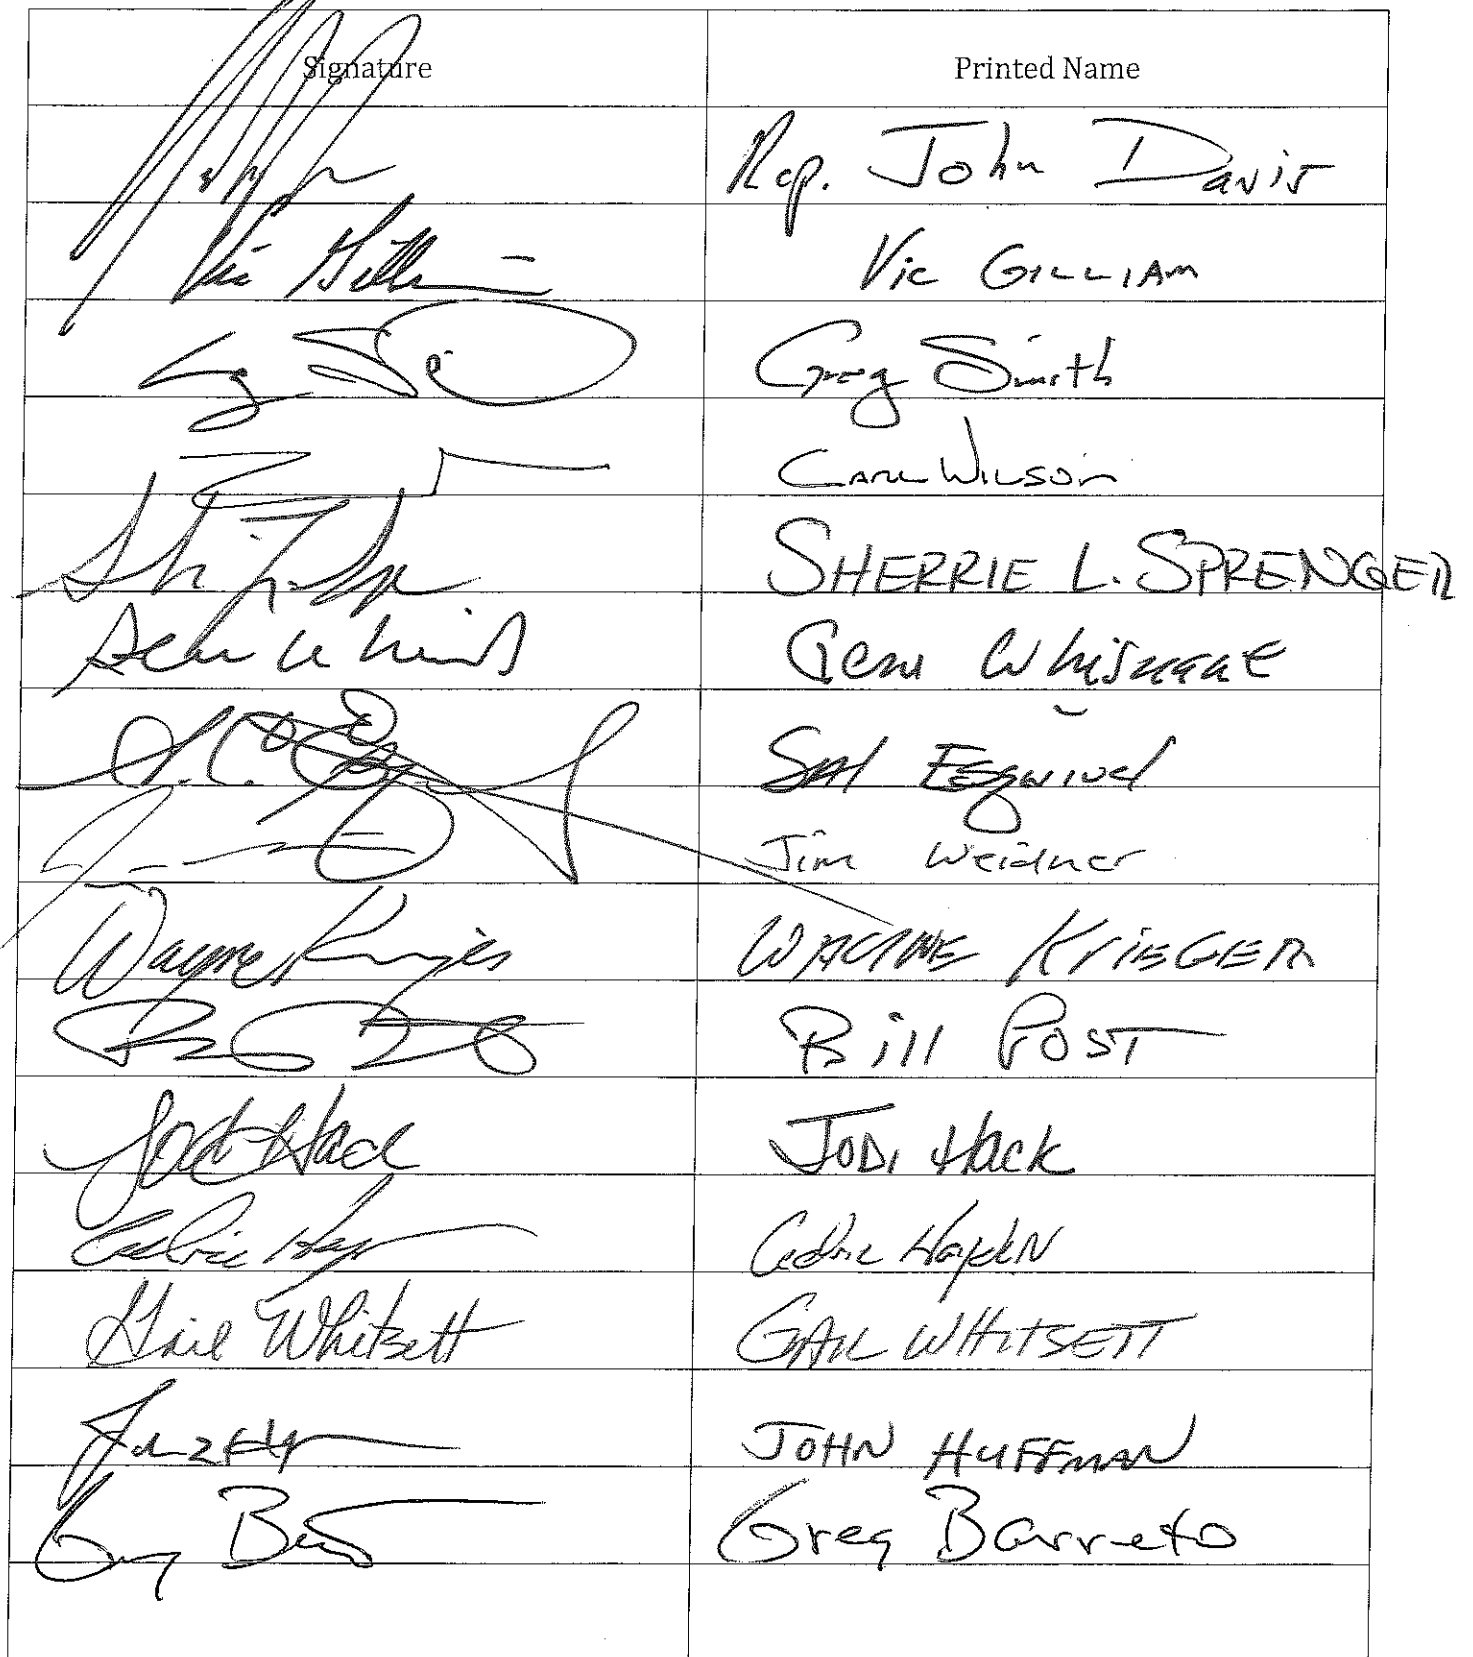 Signature Printed Name
Rep. John Davis
Vic Gilliam Vic GILLIAM
Greg Smith
CARL WILSON
SHERRIE L. SPRENGER
Gene Whisnant
Sal Esquivel
Jim Weidner
Wayne Krieger WAYNE KrIEGER
Bill POST
Jodi Hack JODI HACK
Cedric Hayden Cedric HaydeN
Gail Whitsett GAIL WHITSETT
JOHN HUFFMAN
Greg Barreto